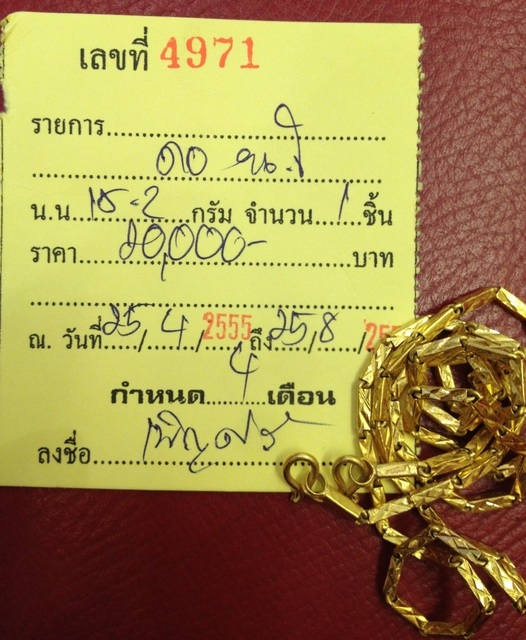 เลขที่ 4971
รายการ
คอ
น.น. 15.2 กรัม จำนวน 1 ชิ้น
ราคา 20,000- บาท
ณ. วันที่ 25/4/2555 ถึง 25/8/
กำหนด 4 เดือน
ลงชื่อ เพ็ญศรี